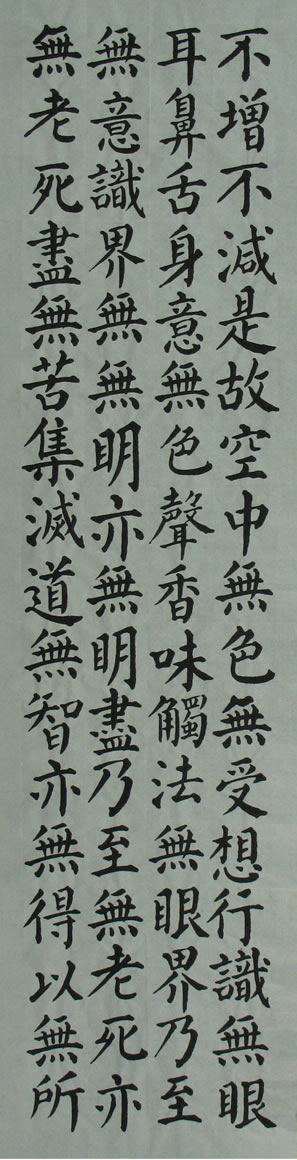 不增不減是故空中無色無受想行識無眼
耳鼻舌身意無色聲香味觸法無眼界乃至
無意識界無無明亦無無明盡乃至無老死亦
無老死盡無苦集滅道無智亦無得以無所